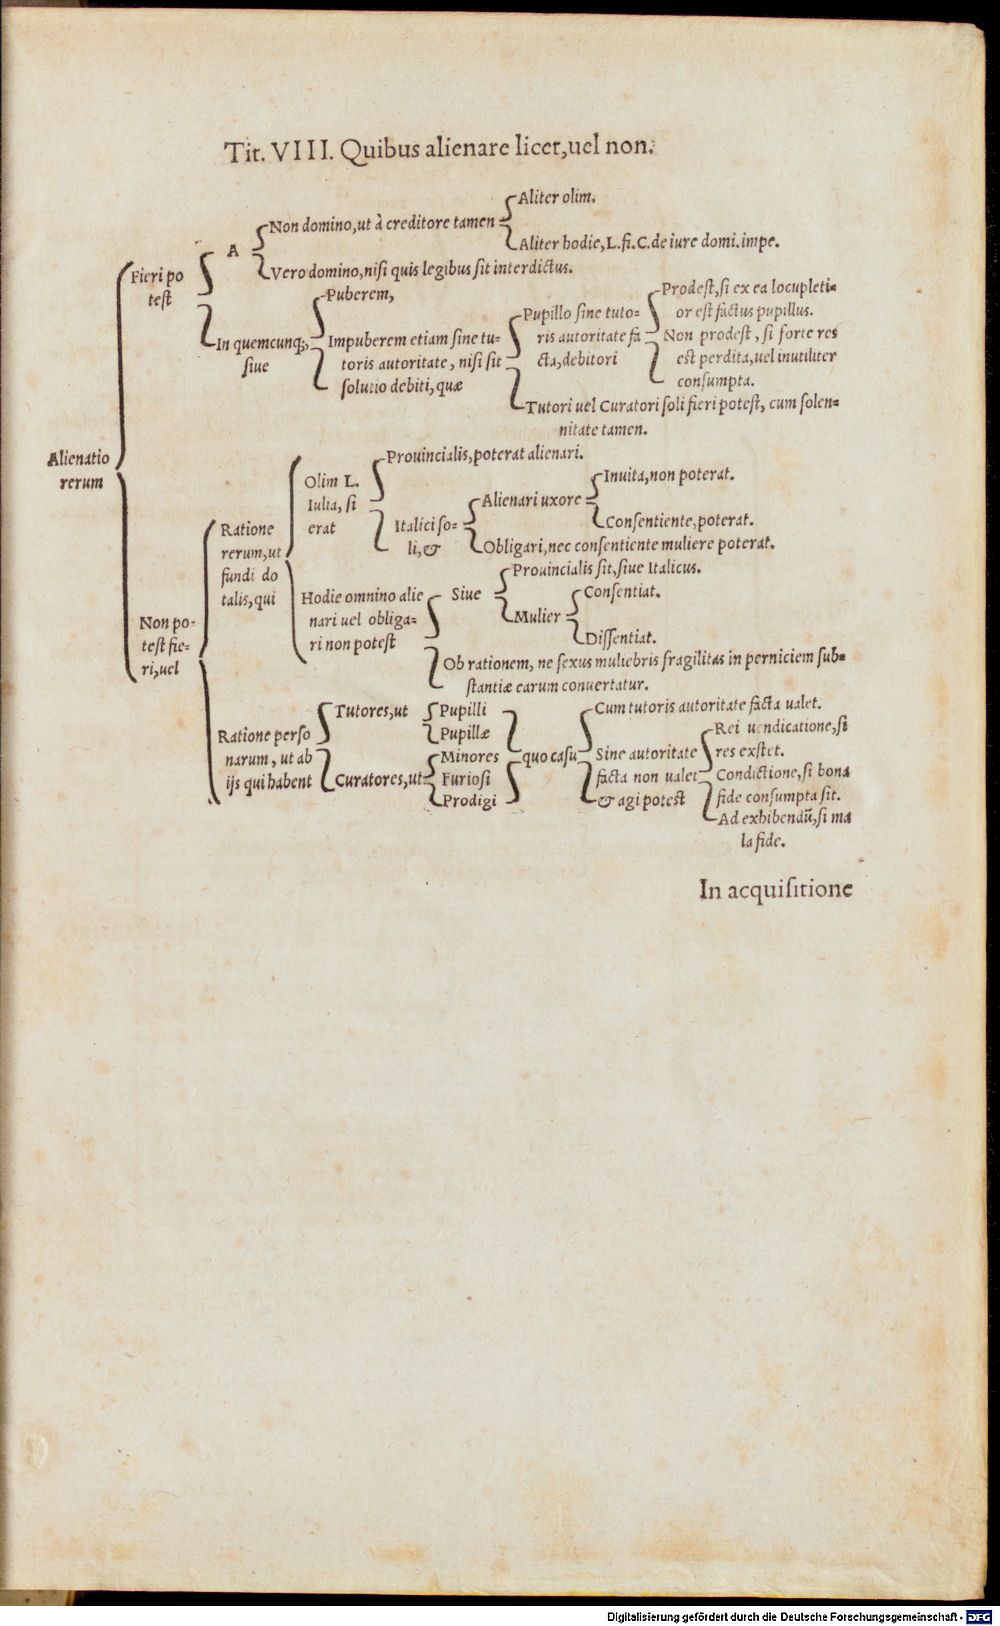 Tit. VIII. Quibus alienare licet, uel non.
Alienatio
rerum
Fieri po
test
A
Non domino, ut à creditore tamen
Aliter olim.
Aliter hodie, L. fi. C. de iure domi. impe.
Vero domino, nisi quis legibus sit interdictus.
In quemcunq;,
siue
Puberem,
Impuberem etiam sine tu-
toris autoritate, nisi sit
solutio debiti, quæ
Pupillo sine tuto-
ris autoritate fa
cta, debitori
Prodest, si ex ea locupleti-
or est factus pupillus.
Non prodest, si forte res
est perdita, uel inutiliter
consumpta.
Tutori uel Curatori soli fieri potest, cum solen-
nitate tamen.
Non po-
test fie-
ri, uel
Ratione
rerum, ut
fundi do
talis, qui
Olim L.
Iulia, si
erat
Prouincialis, poterat alienari.
Italici so-
li, &
Alienari uxore
Inuita, non poterat.
Consentiente, poterat.
Obligari, nec consentiente muliere poterat.
Hodie omnino alie
nari uel obliga-
ri non potest
Siue
Prouincialis sit, siue Italicus.
Mulier
Consentiat.
Dissentiat.
Ob rationem, ne sexus muliebris fragilitas in perniciem sub-
stantiæ earum conuertatur.
Ratione perso
narum, ut ab
ijs qui habent
Tutores, ut
Pupilli
Pupillæ
Curatores, ut
Minores
Furiosi
Prodigi
quo casu
Cum tutoris autoritate facta ualet.
Sine autoritate
facta non ualet
& agi potest
Rei uendicatione, si
res exstet.
Condictione, si bona
fide consumpta sit.
Ad exhibendū, si ma
la fide.
In acquisitione
Digitalisierung gefördert durch die Deutsche Forschungsgemeinschaft - DFG